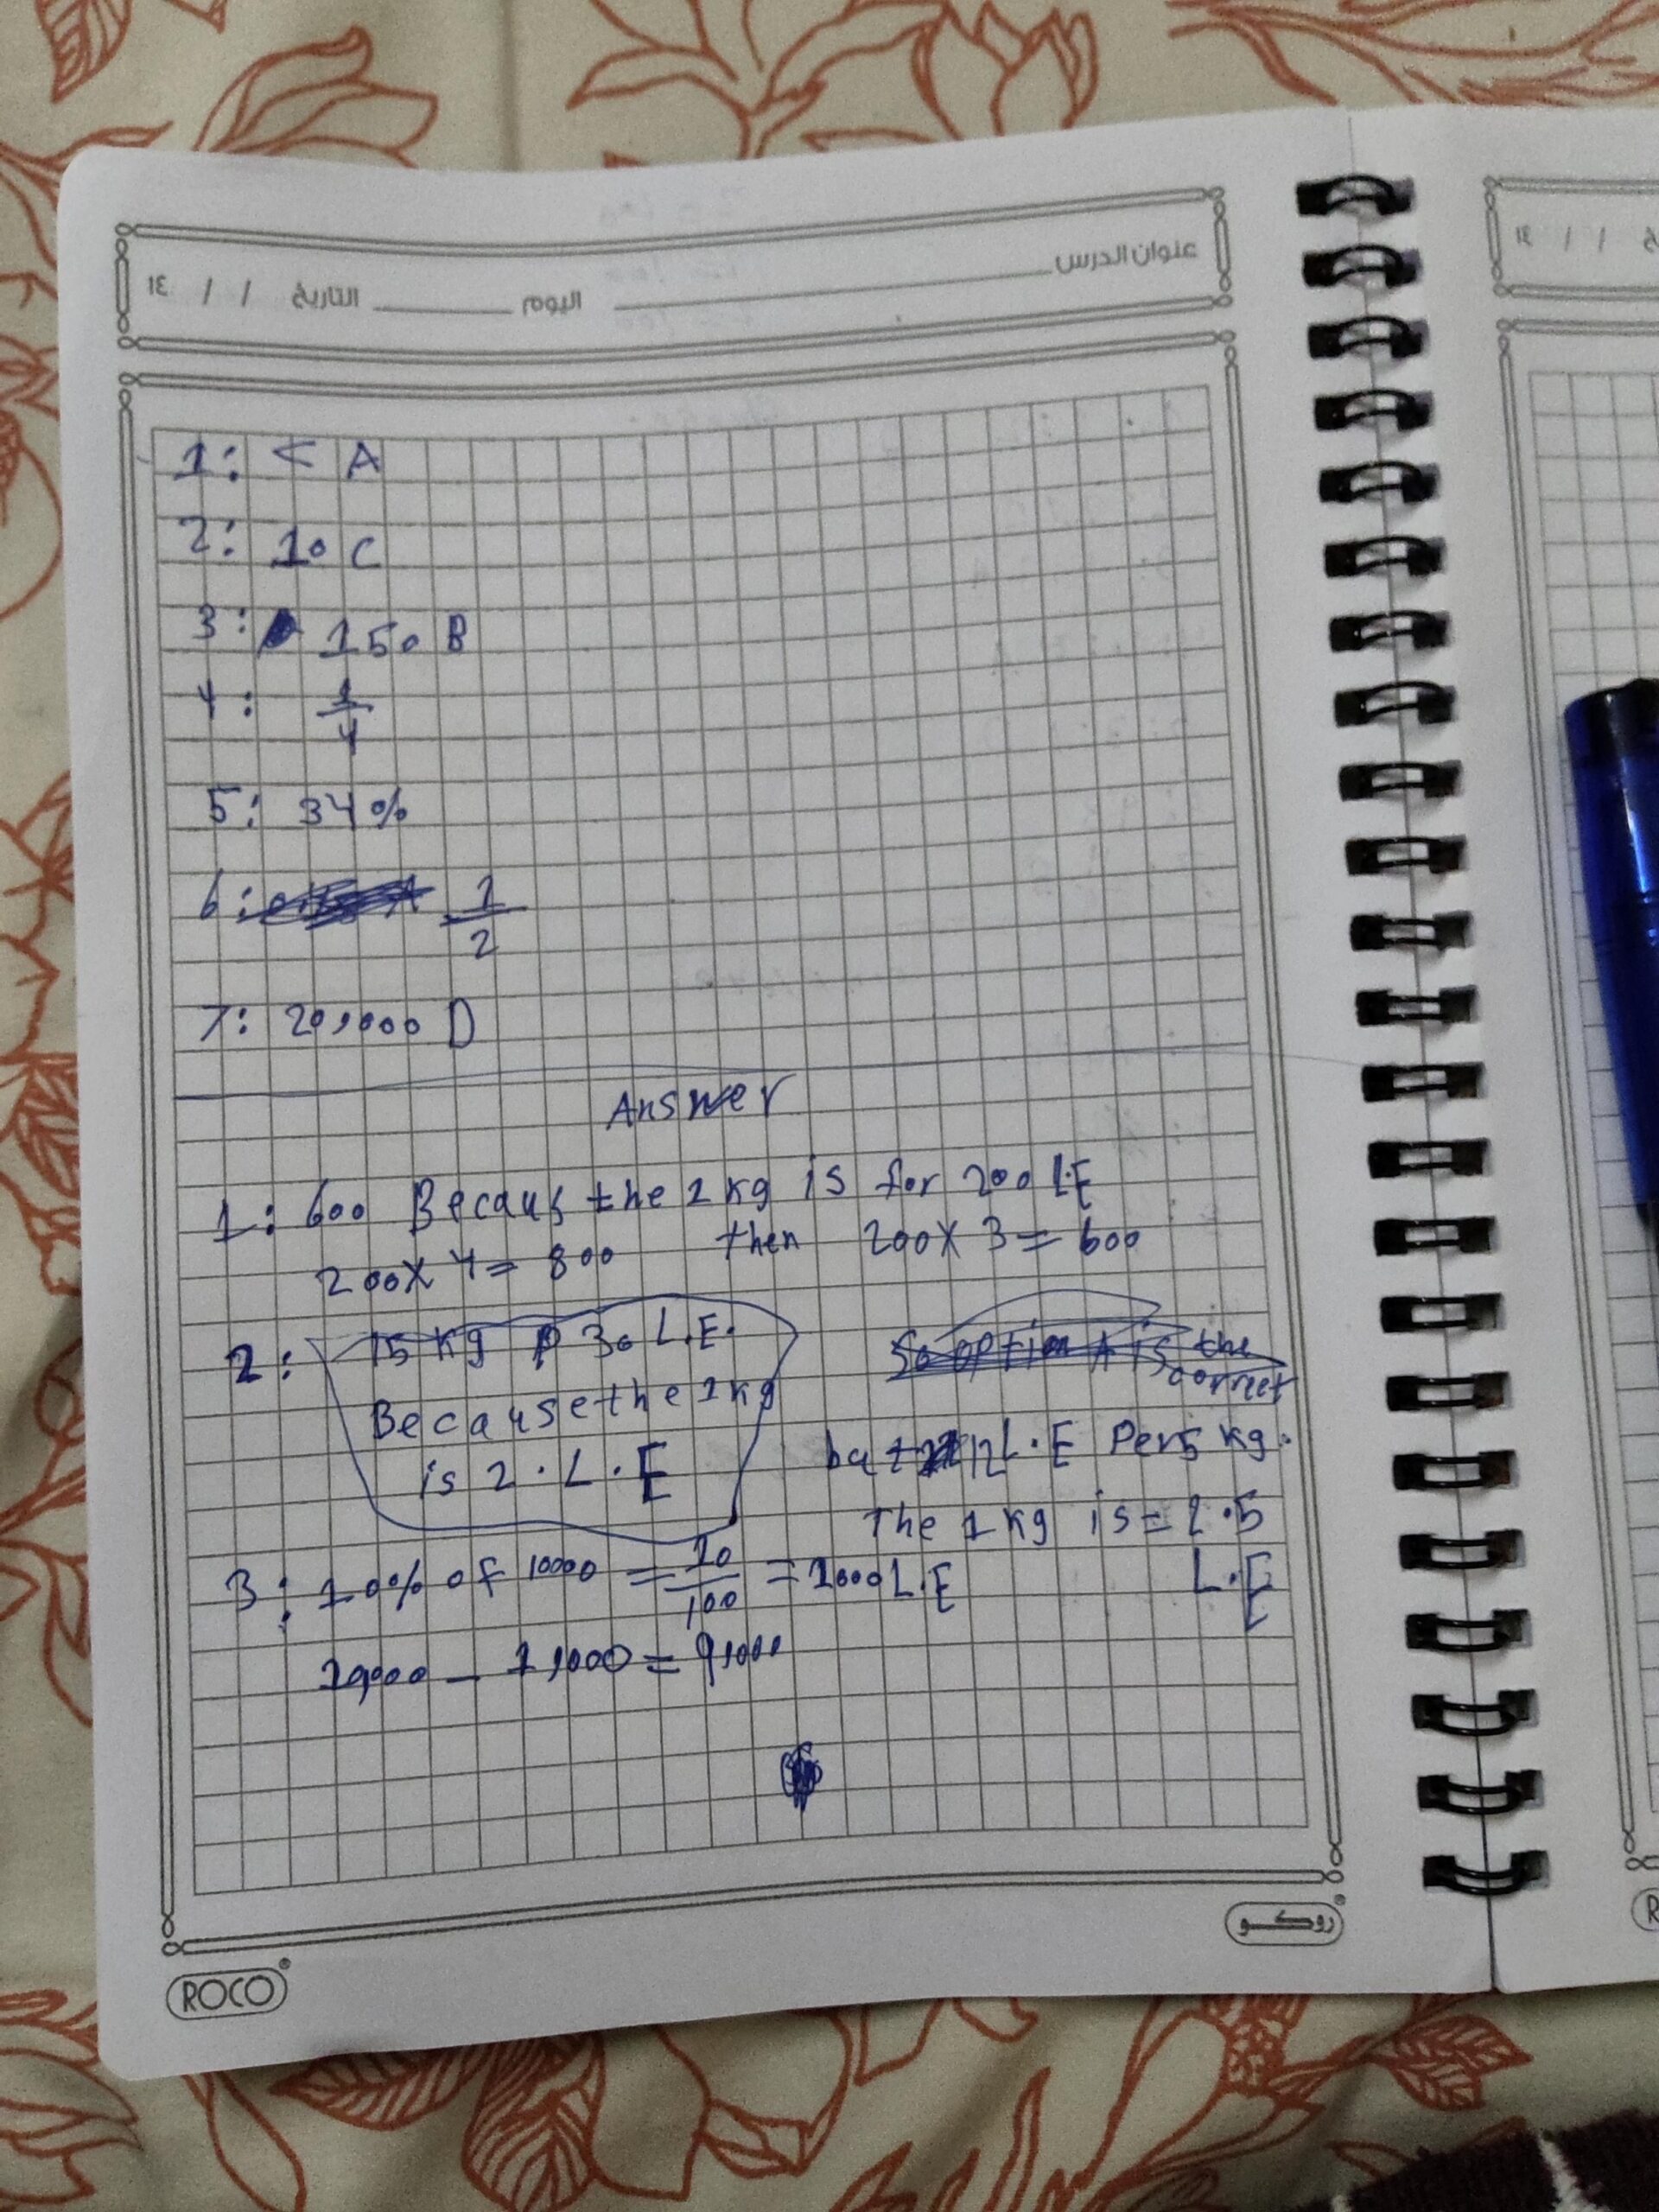 عنوان الدرس اليوم التاريخ / / ١٤
1: < A
2: 10 C
3: 150 B
4: 1/4
5: 34%
6: 1/2
7: 20,000 D
Answer
1: 600 Becaus the 1 kg is for 200 L.E
200 X 4 = 800 then 200 X 3 = 600
2: 15 kg 30 L.E.
Because the 1 kg
is 2 . L . E
So option A is the
correct
12 L.E Per 5 kg.
The 1 kg is = 2.5
L.E
3: 10% of 10000 = 10/100 = 1000 L.E
10,000 - 1,000 = 9,000
ROCO
روكو